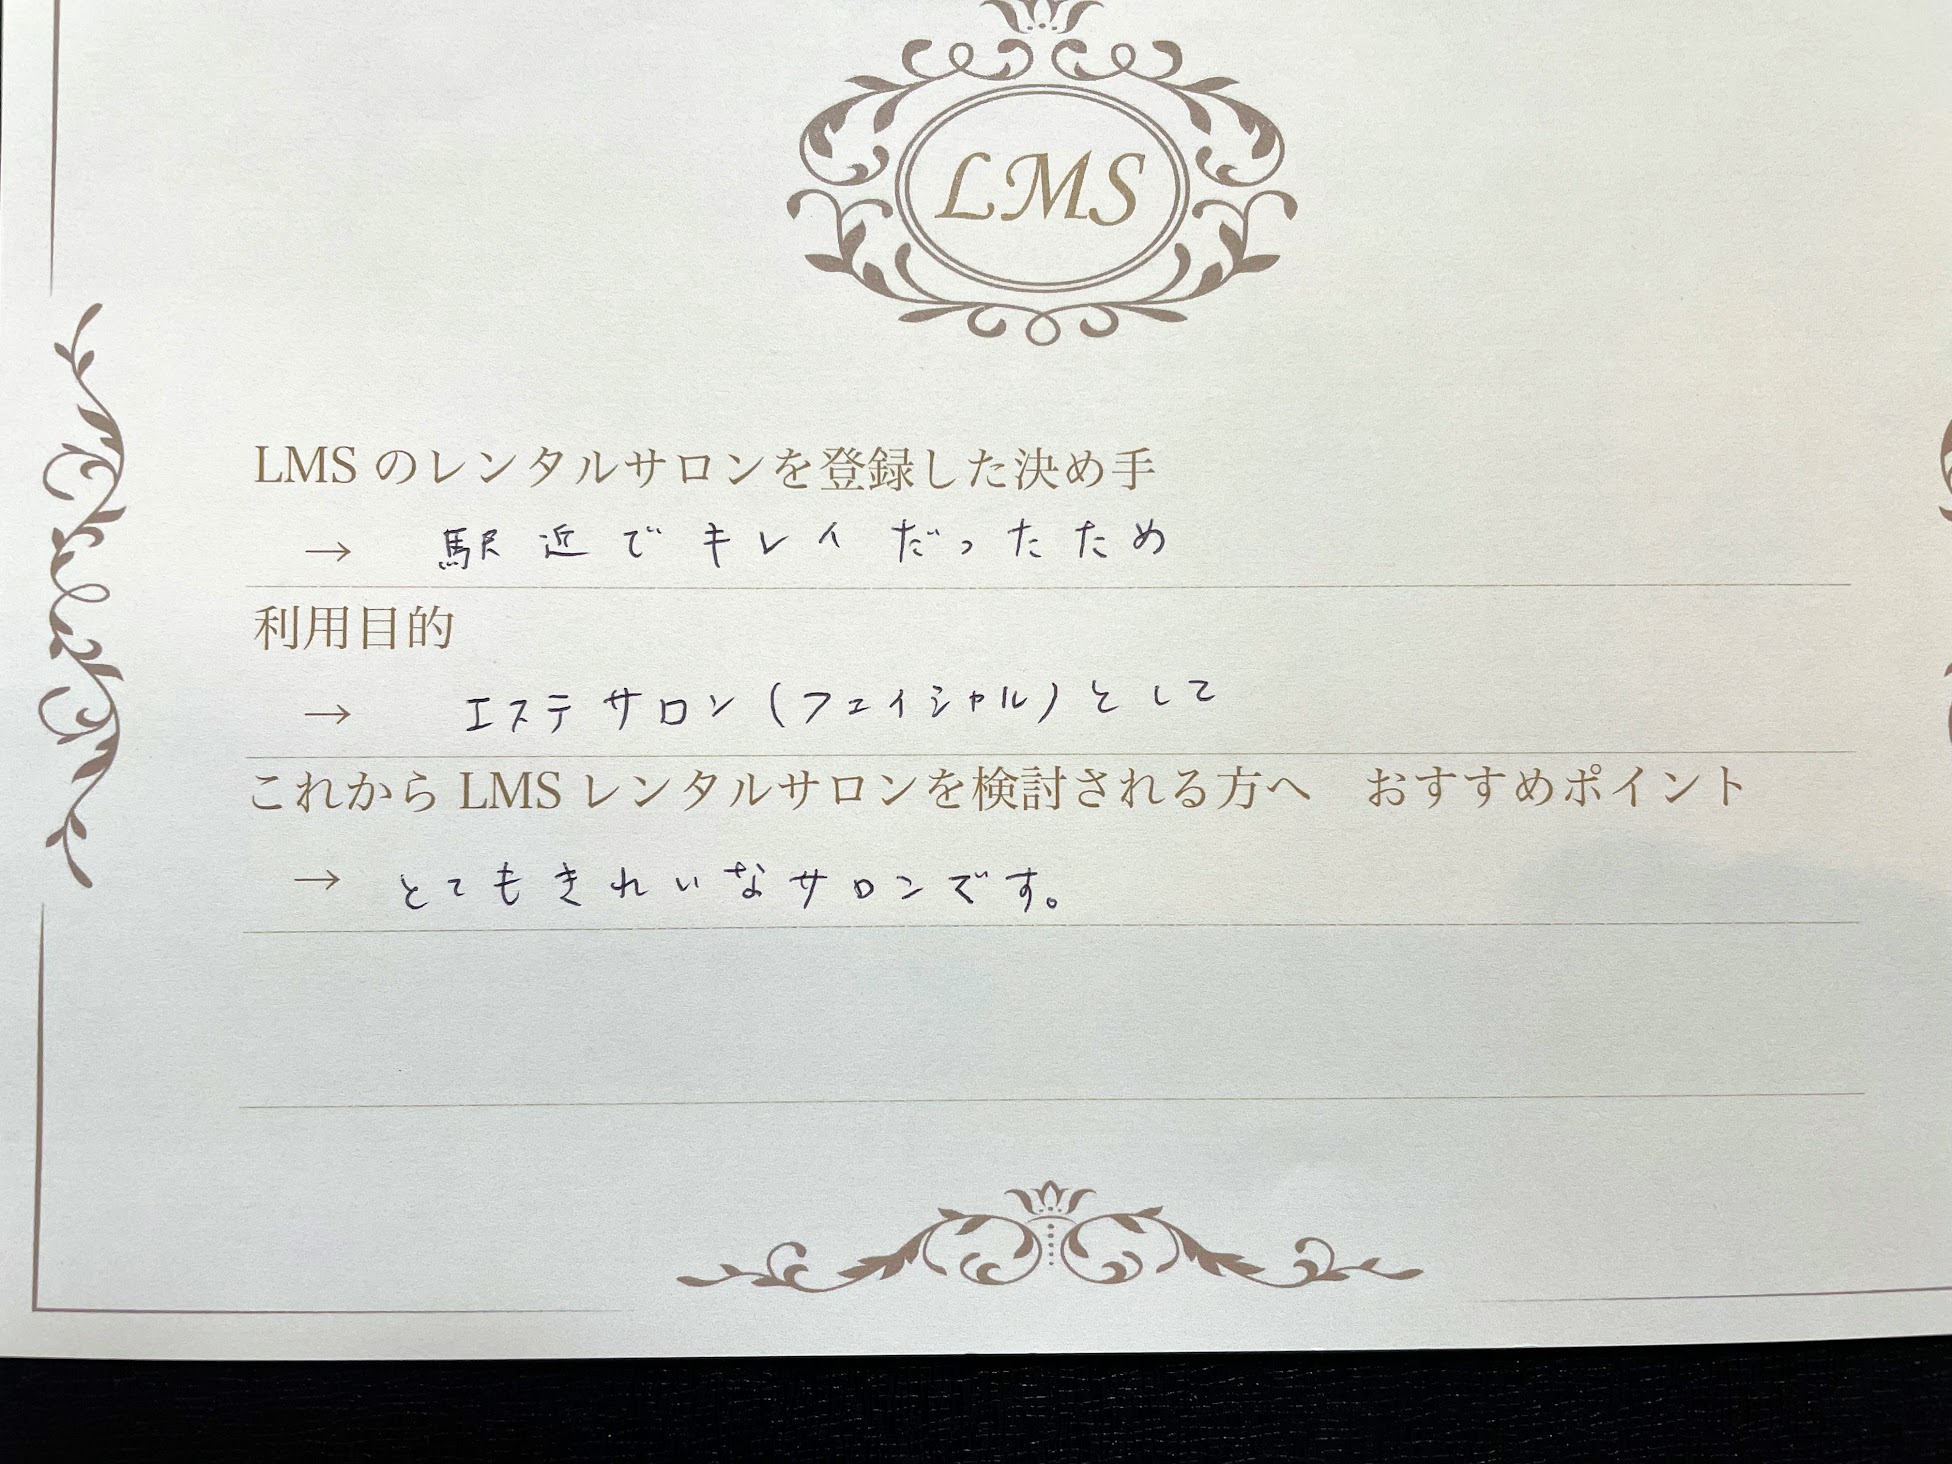 LMS
LMS のレンタルサロンを登録した決め手
→ 駅近でキレイだったため
利用目的
→ エステサロン(フェイシャル)として
これから LMS レンタルサロンを検討される方へ　おすすめポイント
→ とてもきれいなサロンです。